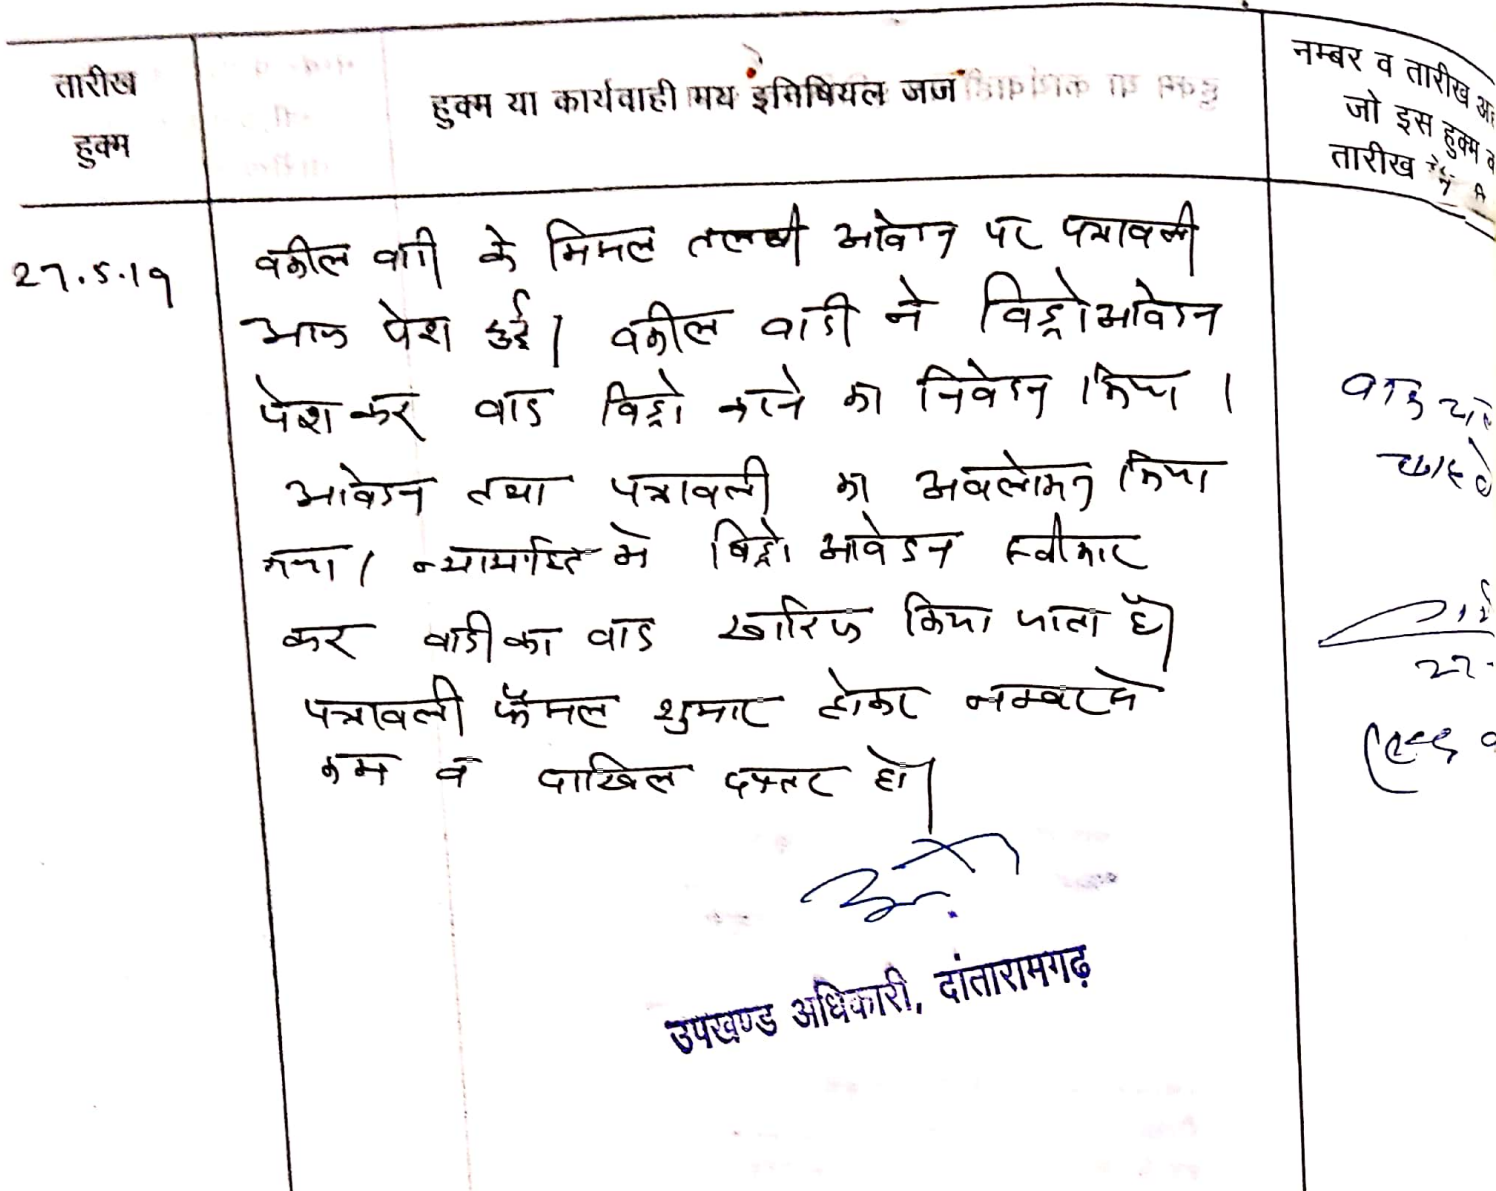 तारीख
हुक्म
हुक्म या कार्यवाही मय इनिषियल जज
नम्बर व तारीख
जो इस हुक्म
तारीख में
27.5.19
वकील वादी के मिसल तलबी आवेदन पर पत्रावली
आज पेश हुई। वकील वादी ने विड्रो आवेदन
पेश कर वाद विड्रो करने का निवेदन किया।
आवेदन तथा पत्रावली का अवलोकन किया
गया। न्यायहित में विड्रो आवेदन स्वीकार
कर वादी का वाद खारिज किया जाता है।
पत्रावली फैसल शुमार होकर नम्बर से
कम व दाखिल दफ्तर हो।
उपखण्ड अधिकारी, दांतारामगढ़